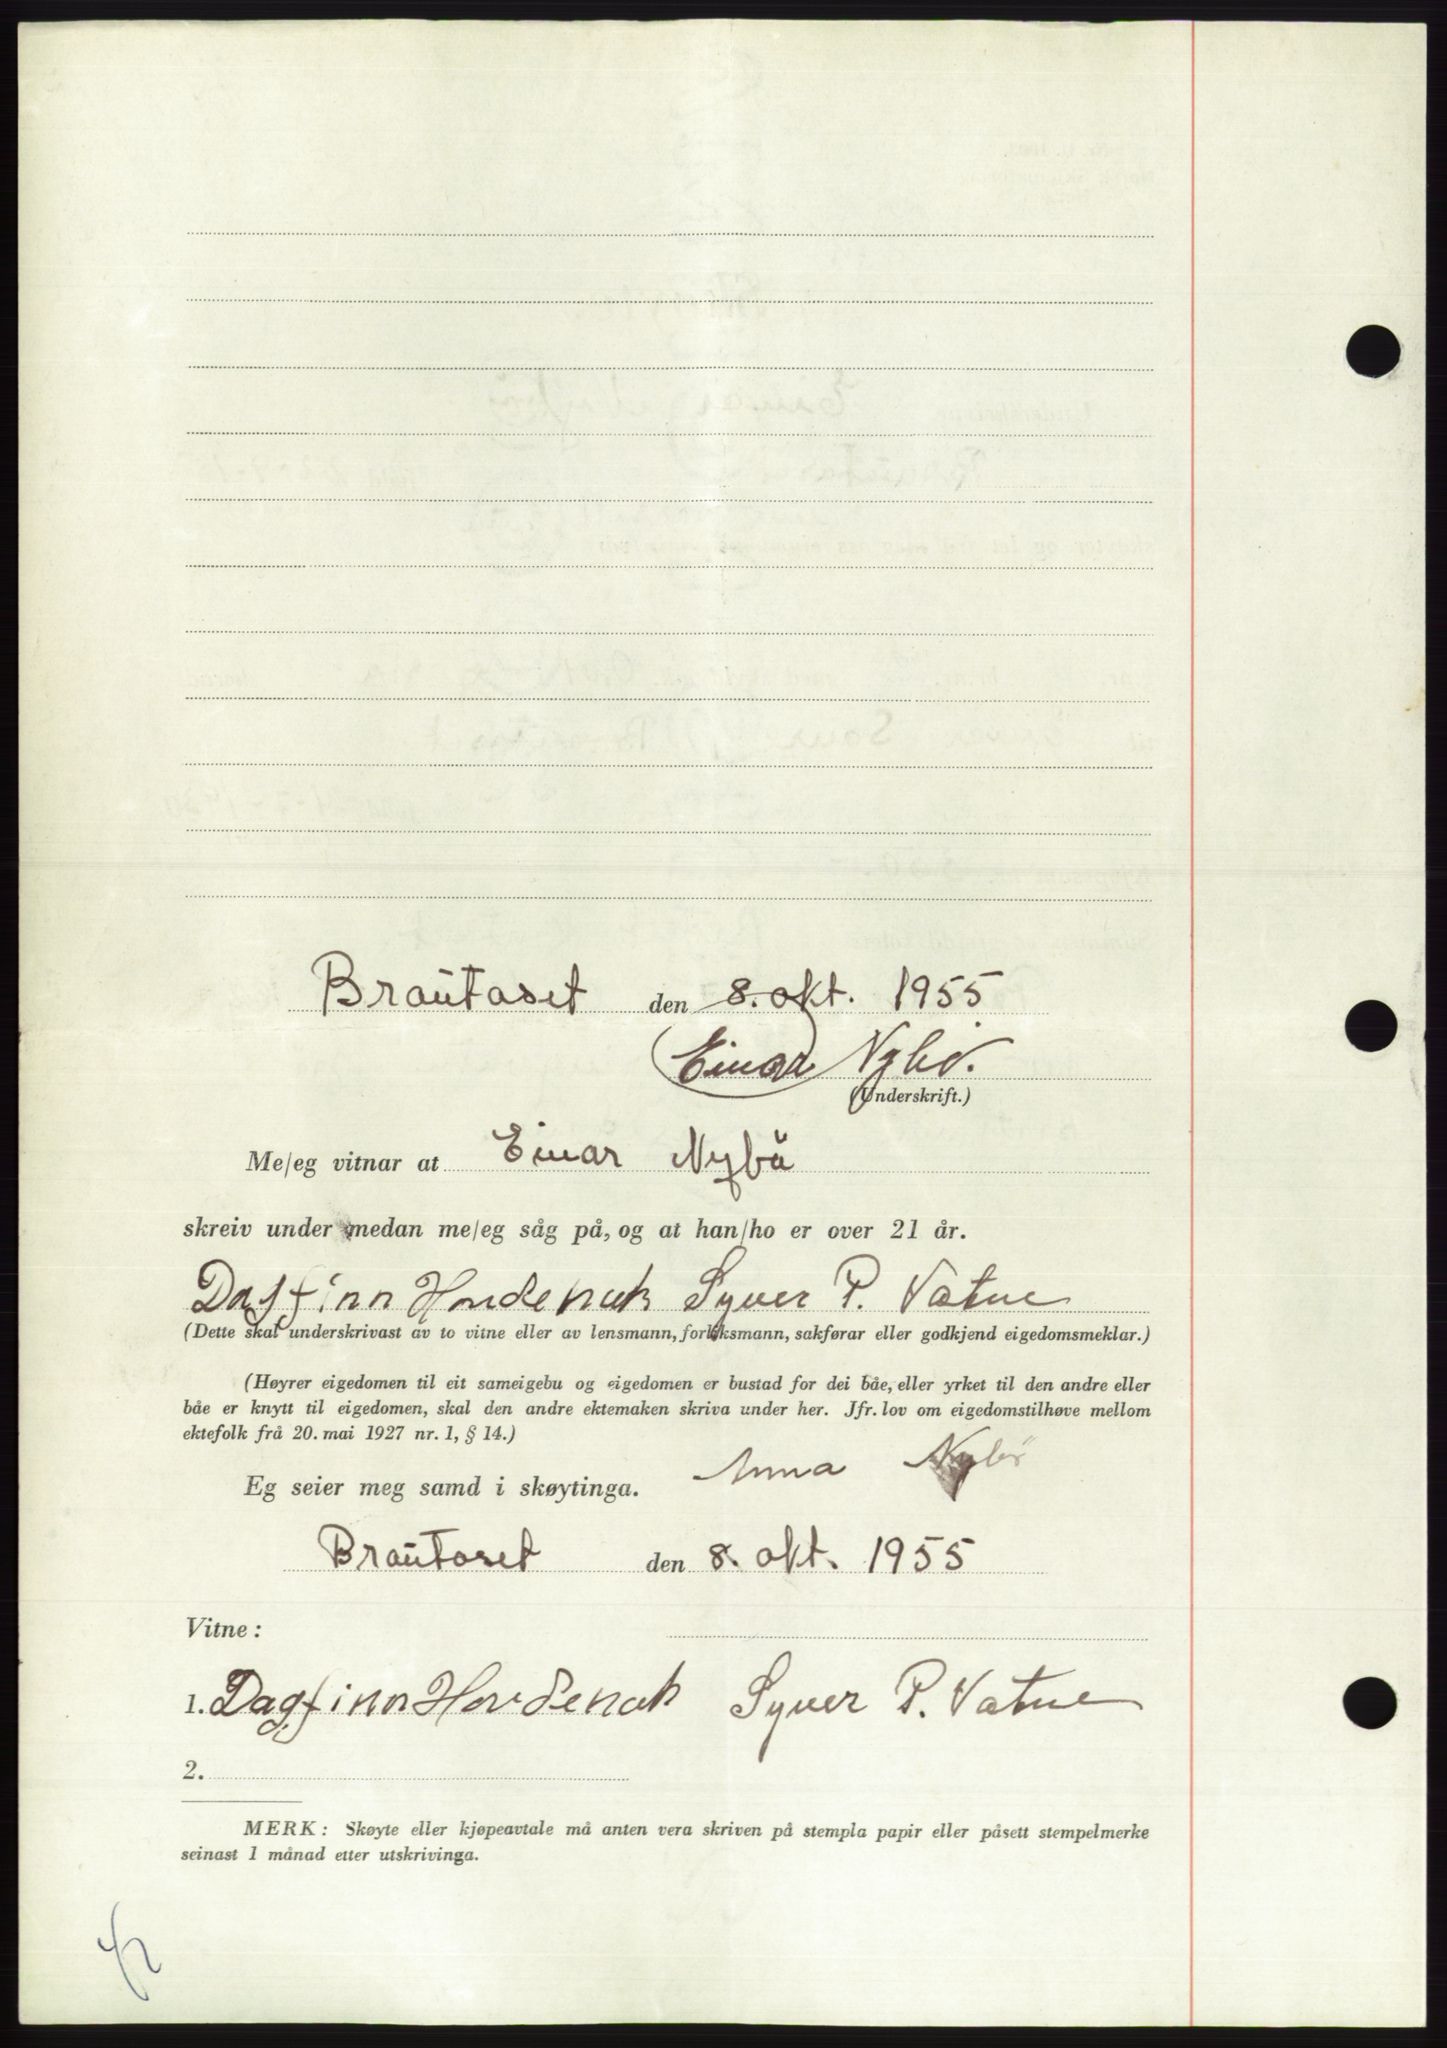 Brautaset den 8. okt. 1955
Einar Nybö.
(Underskrift.)
Me/eg vitnar at Einar Nybö
skreiv under medan me/eg såg på, og at han/ho er over 21 år.
Dagfinn Hovdenak Syver P. Vatne
(Dette skal underskrivast av to vitne eller av lensmann, forliksmann, sakførar eller godkjend eigedomsmeklar.)
(Høyrer eigedomen til eit sameigebu og eigedomen er bustad for dei båe, eller yrket til den andre eller
båe er knytt til eigedomen, skal den andre ektemaken skriva under her. Jfr. lov om eigedomstilhøve mellom
ektefolk frå 20. mai 1927 nr. 1, § 14.)
Eg seier meg samd i skøytinga. Anna Nybö
Brautaset den 8. okt. 1955
Vitne:
1. Dagfinn Hovdenak Syver P. Vatne
2.
MERK: Skøyte eller kjøpeavtale må anten vera skriven på stempla papir eller påsett stempelmerke
seinast 1 månad etter utskrivinga.